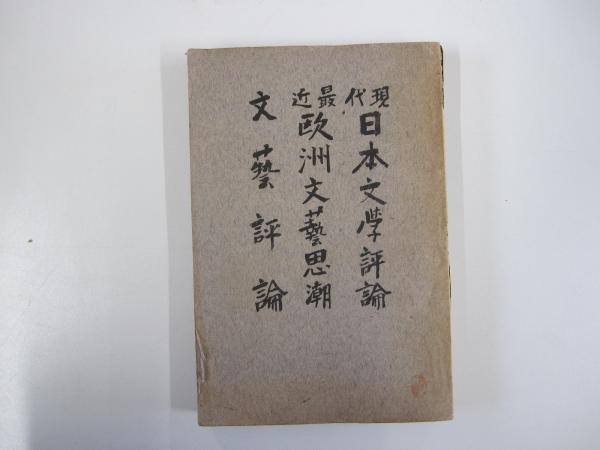 現代日本文学評論
最近欧洲文藝思潮
文藝評論